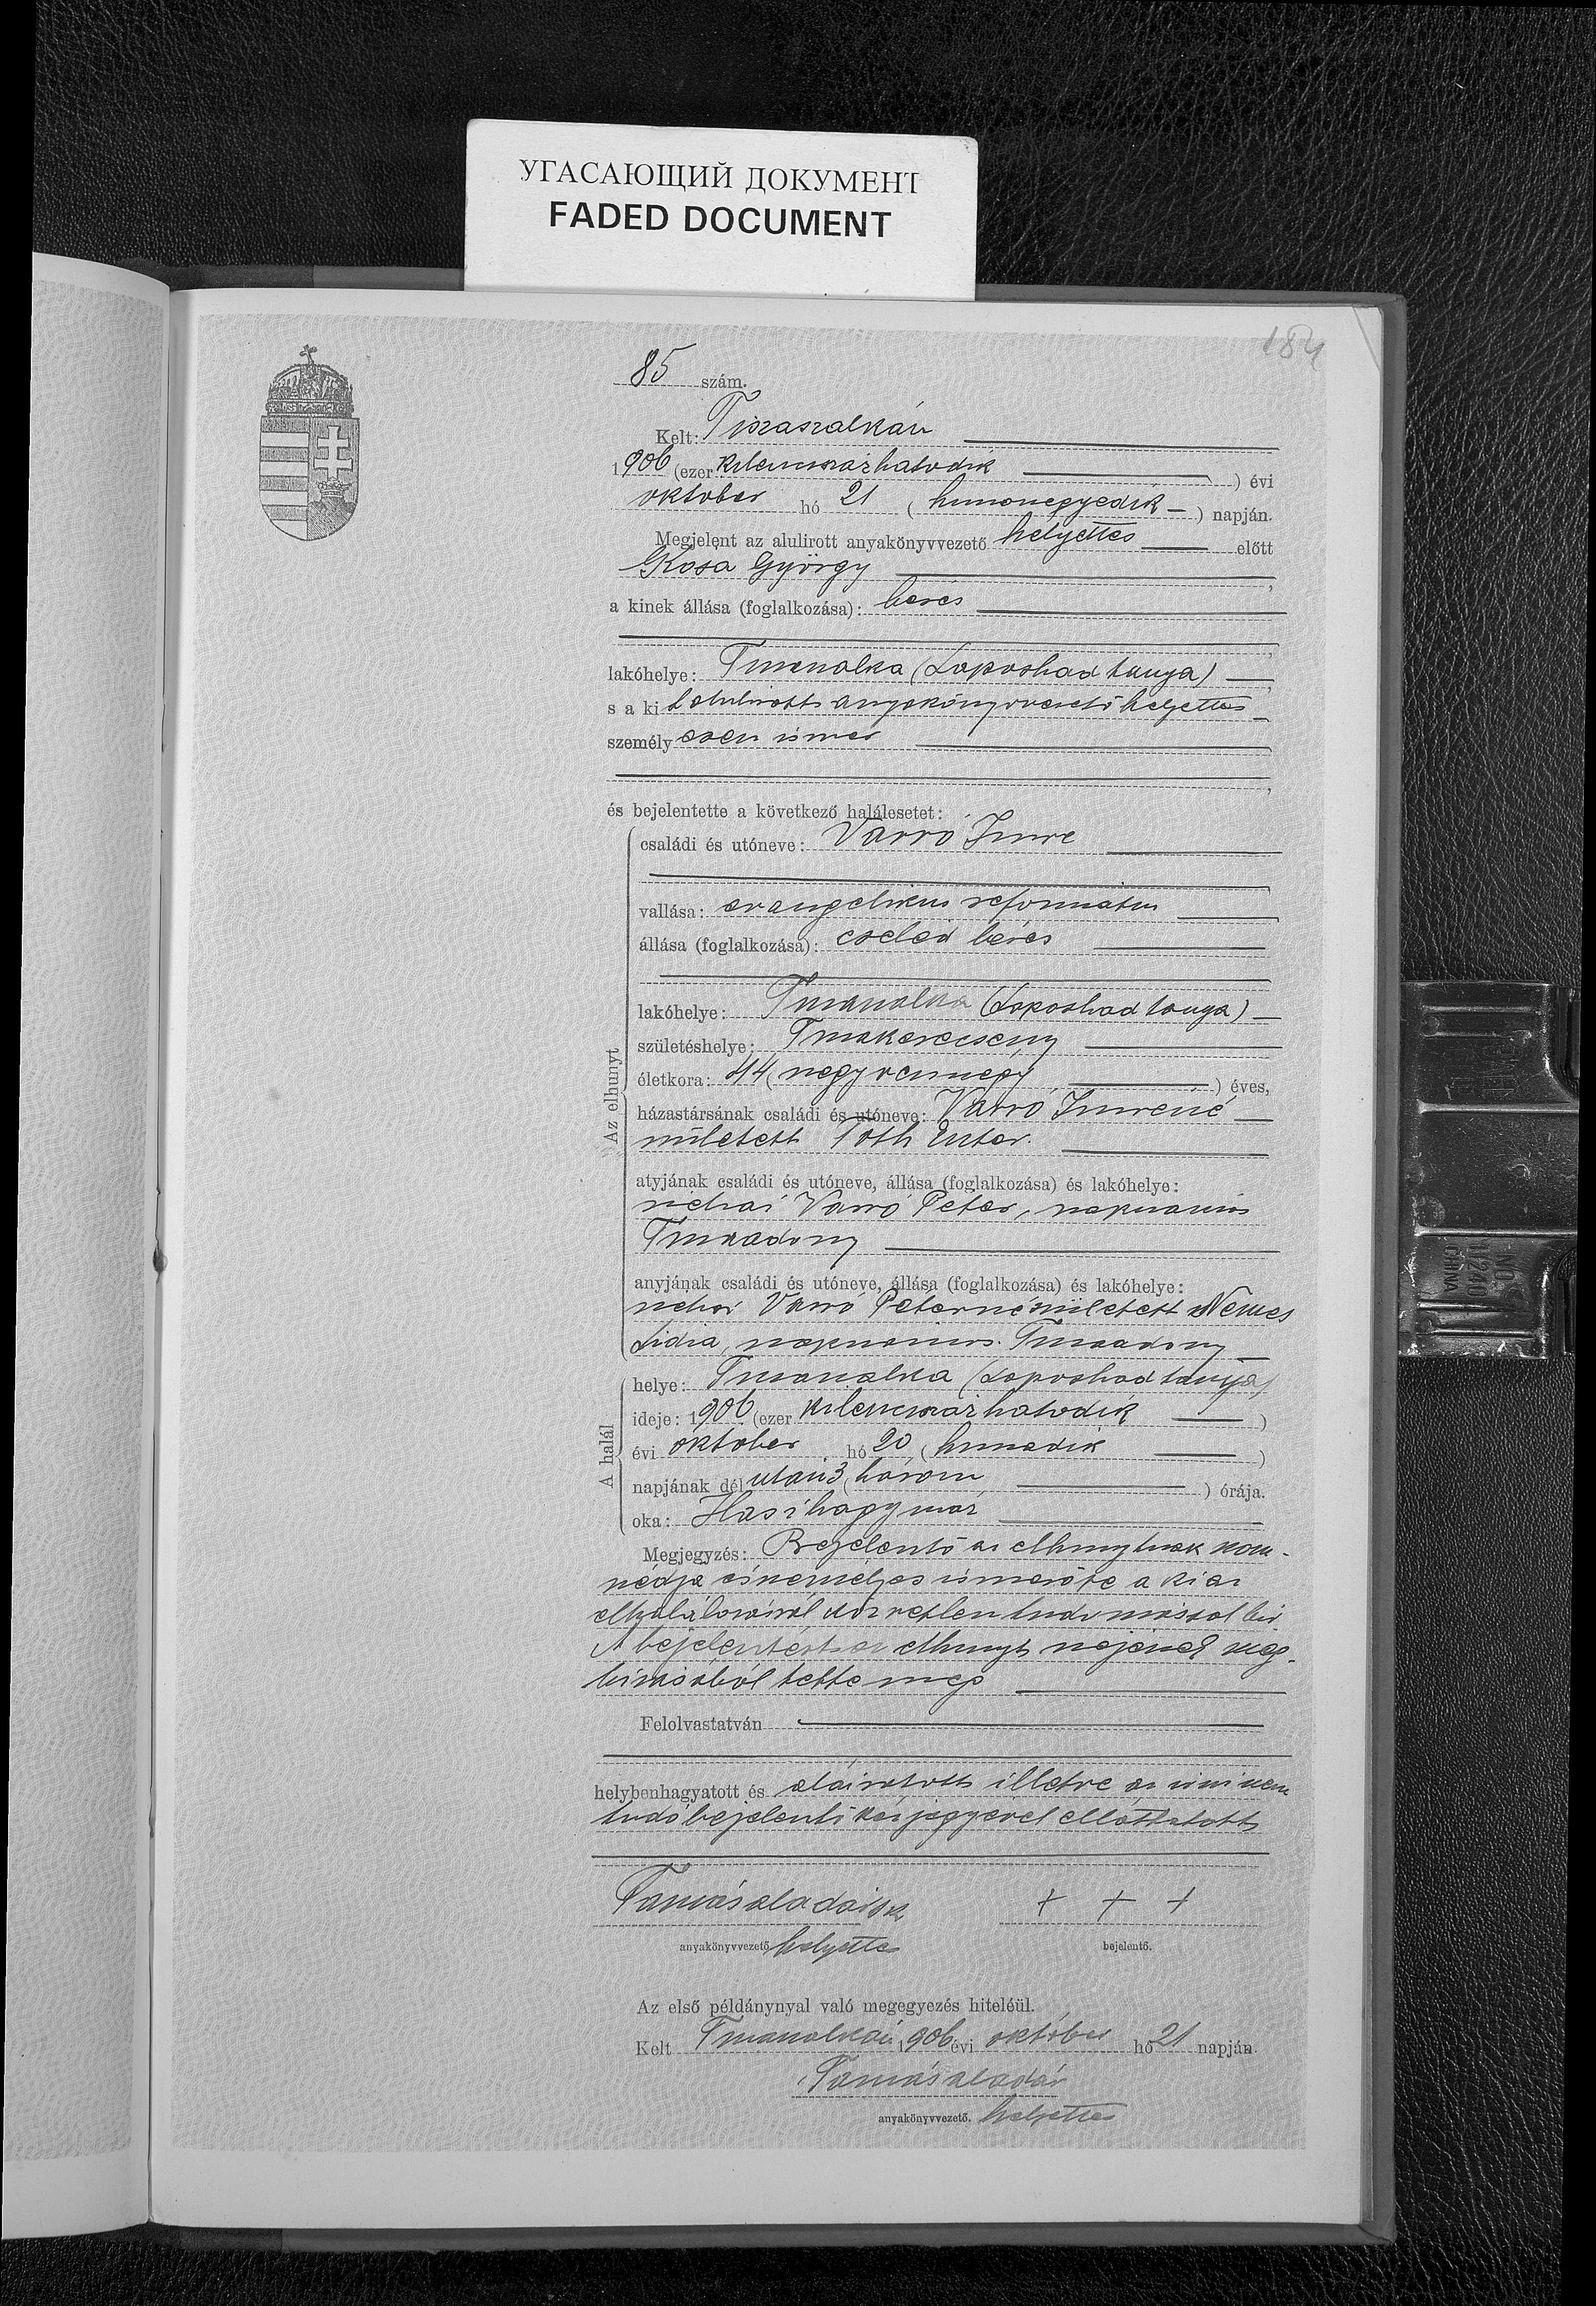 УГАСАЮЩИЙ ДОКУМЕНТ
FADED DOCUMENT
184
85 szám.
Kelt: Tiszaszalkán
1906 (ezer kilencszázhatodik ) évi
október hó 21 ( huszonegyedik ) napján.
Megjelent az alulirott anyakönyvvezető helyettes előtt
Kósa György
a kinek állása (foglalkozása): béres
lakóhelye: Tiszaszalka (Laposhad tanya)
s a kit alulirott anyakönyvvezető helyettes
személyesen ismer
és bejelentette a következő halálesetet:
Az elhunyt
családi és utóneve: Varró Imre
vallása: evangelikus református
állása (foglalkozása): cseléd béres
lakóhelye: Tiszaszalka (Laposhad tanya)
születéshelye: Tiszakerecseny
életkora: 44 ( negyvennégy ) éves,
házastársának családi és utóneve: Varró Imréné
született Tóth Eszter.
atyjának családi és utóneve, állása (foglalkozása) és lakóhelye:
néhai Varró Péter, napszámos
Tiszaadony
anyjának családi és utóneve, állása (foglalkozása) és lakóhelye:
néhai Varró Péterné született Nemes
Lidia, napszámos. Tiszaadony
A halál
helye: Tiszaszalka (Laposhad tanya)
ideje: 1906 (ezer kilencszázhatodik )
évi október hó 20 ( huszadik )
napjának dél után 3 ( három ) órája.
oka: Hasihagymáz
Megjegyzés: Bejelentő az elhunytnak szom-
szédja és személyes ismerőse a ki az
elhalálozásról közvetlen tudomással bir
A bejelentést az elhunyt nejének meg-
bizásából tette meg
Felolvastatván
helybenhagyatott és aláiratott illetve az irni nem
tudó bejelentő kézjegyével elláttatott
Tamás Aladár sk + + +
anyakönyvvezető helyettes bejelentő.
Az első példánynyal való megegyezés hiteléül.
Kelt Tiszaszalkán 1906 évi október hó 21 napján.
Tamás Aladár
anyakönyvvezető. helyettes